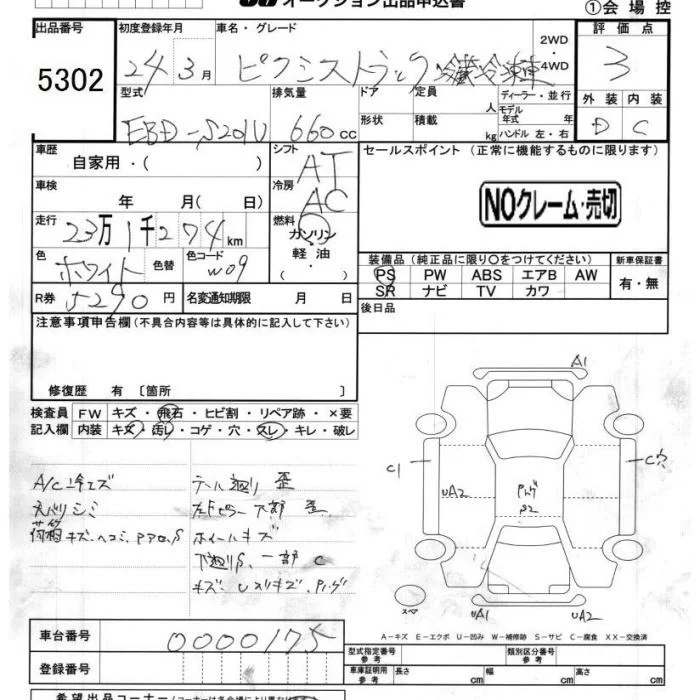 オークション出品申込書
①会場控
出品番号 初度登録年月 車名・グレード 2WD・4WD 評価点
5302 24年3月 ピクシストラック 3
型式 排気量 ドア 定員 人 ディーラー・並行 外装 内装
EBD-S201U 660cc 形状 積載 kg モデル年式 年 ハンドル 左・右 D C
車歴 自家用・( ) シフト AT セールスポイント (正常に機能するものに限ります)
車検 年 月(日) 冷房 AC
NOクレーム・売切
走行 23万1千274km 燃料 ガソリン・軽油・( )
色 ホワイト 色替 色コード W09
装備品(純正品に限り○をつけてください) 新車保証書
PS PW ABS エアB AW 有・無
SR ナビ TV カワ
R券 5290円 名変通知期限 月 日
後日品
注意事項申告欄(不具合内容等は具体的に記入して下さい)
修復歴 有 [箇所 ]
検査員記入欄 FW キズ・飛石・ヒビ割・リペア跡・×要
内装 キズ・汚レ・コゲ・穴・スレ・キレ・破レ
A/C冷エズ
天バリシミ
キズ、ヘコミ
テール廻り 歪
下部 歪
ホイールキズ
下廻りS、一部C
A1
C1
UA2
UA2
スペア
UA1
UA2
A-キズ E-エクボ U-凹み W-補修跡 S-サビ C-腐食 XX-交換済
車台番号 0000175
型式指定番号 参考 類別区分番号 参考
登録番号
車庫証明用 参考 長さ cm 幅 cm 高さ cm
希望出品コーナー